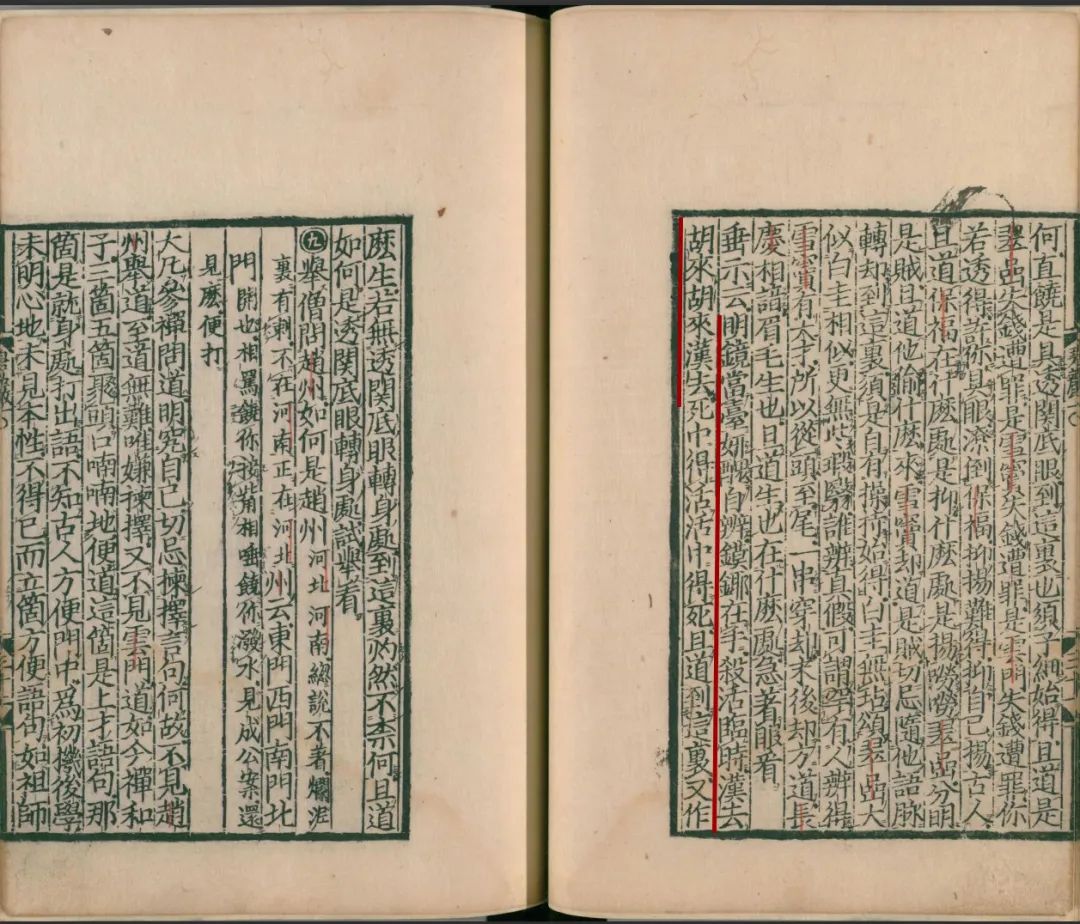 何直饒是具透關底眼到這裏也須子細始得且道是
翠嵓失錢遭罪是雪竇失錢遭罪是雲門失錢遭罪你
若透得許你具眼潦倒保福抑揚難得抑自己揚古人
且道保福在什麽處是抑什麽處是揚嘮嘮翠嵓分明
是賊且道他偷什麽來雪竇却道是賊切忌隨他語脉
轉却到這裏須是自有操持始得白圭無玷頌翠嵓大
似白圭相似更無些瑕翳誰辨真假可謂罕有人辨得
雪竇有大才所以從頭至尾一串穿却末後却方道長
慶相諳眉毛生也且道生也在什麽處急著眼看
垂示云明鏡當臺妍醜自辨鏌鎁在手殺活臨時漢去
胡來胡來漢去死中得活活中得死且道到這裏又作
麽生若無透關底眼轉身處到這裏灼然不柰何且道
如何是透關底眼轉身處試舉看
九舉僧問趙州如何是趙州河北河南總說不著爛泥
裏有刺不在河南正在河北州云東門西門南門北
門開也相罵饒你接觜相唾饒你潑水見成公案還
見麽便打
大凡參禪問道明究自己切忌揀擇言句何故不見趙
州舉道至道無難唯嫌揀擇又不見雲門道如今禪和
子三箇五箇聚頭口喃喃地便道這箇是上才語句那
箇是就身處打出語不知古人方便門中爲初機後學
未明心地未見本性不得已而立箇方便語句如祖師